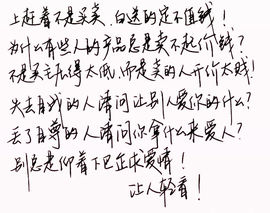 上赶着不是买卖,白送的定不值钱!
为什么有些人的产品总是卖不起价钱?
不是买主私得太低,而是卖的人开价太贱!
失去自我的人请问让别人爱你的什么?
丢了自尊的人请问你拿什么来爱人?
别总是仰着下巴正求爱情!
让人轻看!